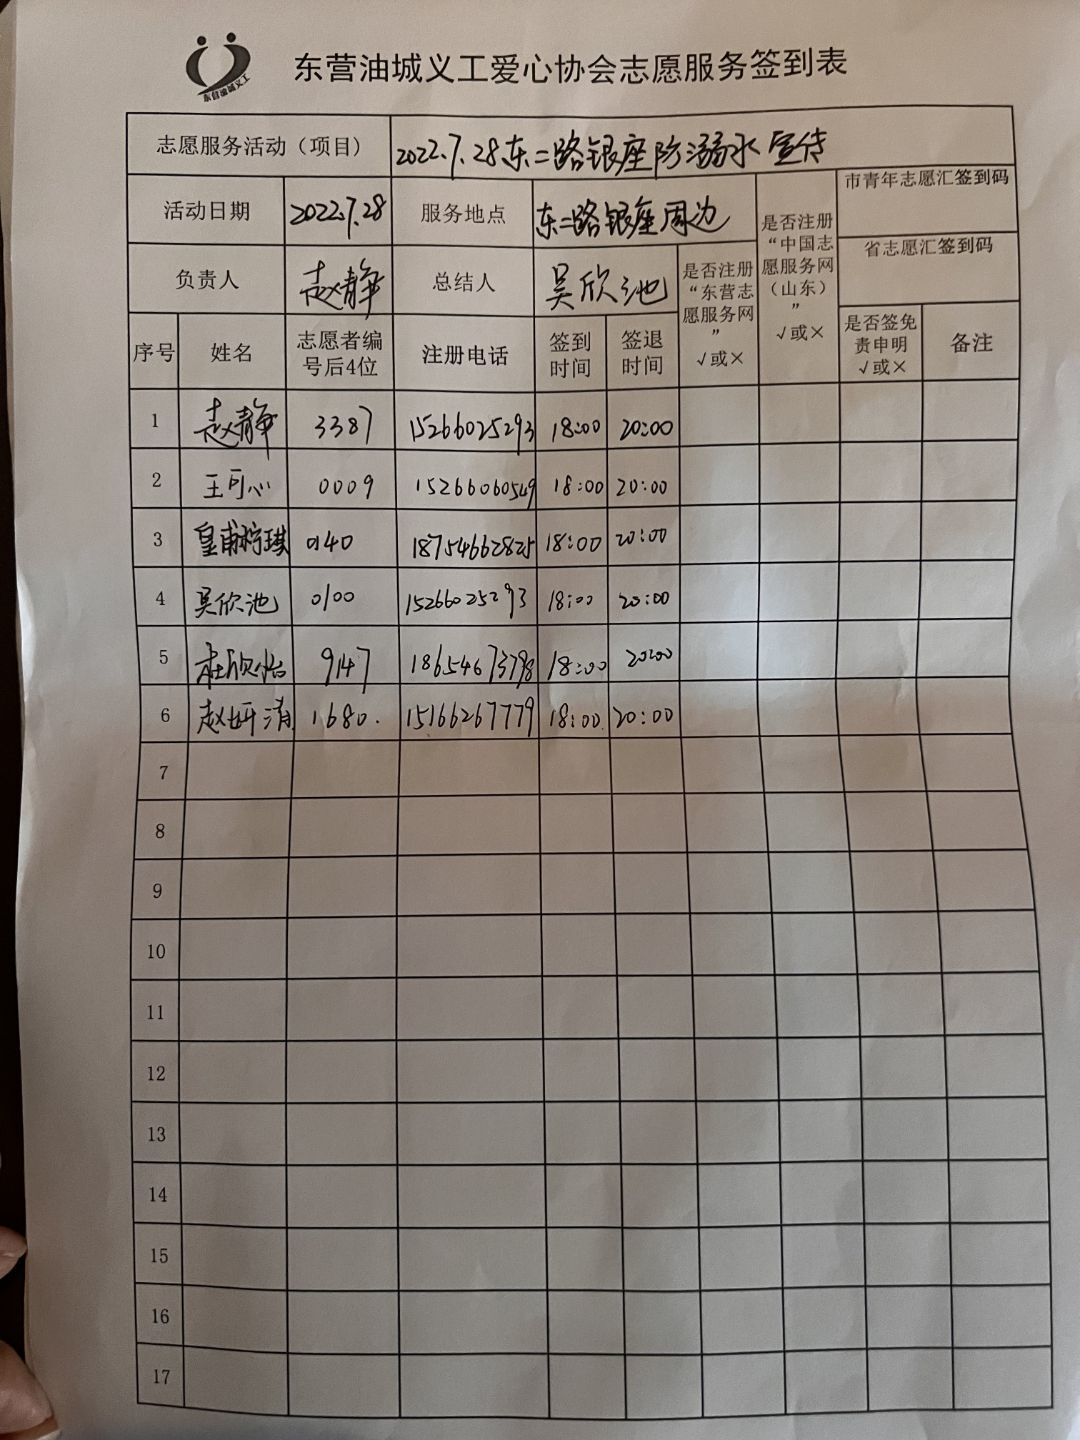 东营油城义工
东营油城义工爱心协会志愿服务签到表
志愿服务活动（项目） 2022.7.28东二路银座防溺水宣传
活动日期 2022.7.28 服务地点 东二路银座周边 是否注册“中国志愿服务网（山东）”√或× 市青年志愿汇签到码
负责人 赵静 总结人 吴欣池 是否注册“东营志愿服务网”√或× 省志愿汇签到码
序号 姓名 志愿者编号后4位 注册电话 签到时间 签退时间 是否签免责申明√或× 备注
1 赵静 3387 15266025293 18:00 20:00
2 王可心 0009 15266060549 18:00 20:00
3 皇甫柠琪 0140 18754662825 18:00 20:00
4 吴欣池 0100 15266025293 18:00 20:00
5 杜欣怡 9147 18654673798 18:00 20:00
6 赵妍清 1680. 15166267779 18:00 20:00
7
8
9
10
11
12
13
14
15
16
17